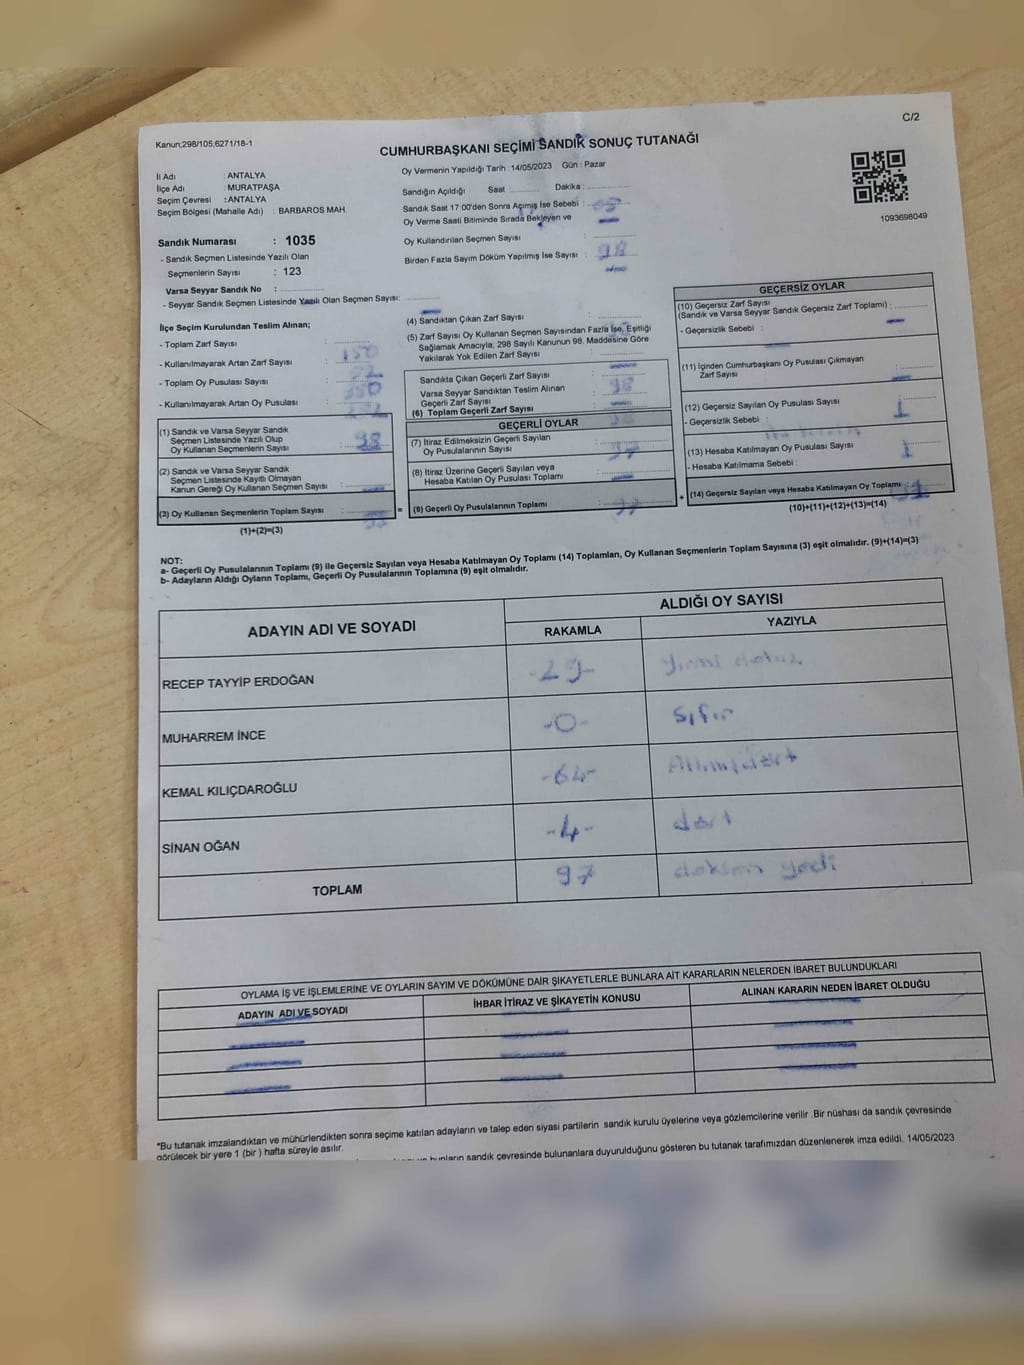 Kanun;298/105,6271/18-1
C/2
CUMHURBAŞKANI SEÇİMİ SANDIK SONUÇ TUTANAĞI
İl Adı : ANTALYA
İlçe Adı : MURATPAŞA
Seçim Çevresi : ANTALYA
Seçim Bölgesi (Mahalle Adı) : BARBAROS MAH.
Oy Vermenin Yapıldığı Tarih : 14/05/2023 Gün : Pazar
Sandığın Açıldığı Saat .......... Dakika : ..........
Sandık Saat 17:00'den Sonra Açımış İse Sebebi :
Oy Verme Saati Bitiminde Sırada Bekleyen ve
Oy Kullandırılan Seçmen Sayısı :
Birden Fazla Sayım Döküm Yapılmış İse Sayısı : 98
1093698049
Sandık Numarası : 1035
- Sandık Seçmen Listesinde Yazılı Olan
Seçmenlerin Sayısı : 123
Varsa Seyyar Sandık No : ..........
- Seyyar Sandık Seçmen Listesinde Yazılı Olan Seçmen Sayısı: ..........
İlçe Seçim Kurulundan Teslim Alınan;
- Toplam Zarf Sayısı :
- Kullanılmayarak Artan Zarf Sayısı : 150
- Toplam Oy Pusulası Sayısı :
- Kullanılmayarak Artan Oy Pusulası :
(1) Sandık ve Varsa Seyyar Sandık
Seçmen Listesinde Yazılı Olup
Oy Kullanan Seçmenlerin Sayısı : 98
(2) Sandık ve Varsa Seyyar Sandık
Seçmen Listesinde Kayıtlı Olmayan
Kanun Gereği Oy Kullanan Seçmen Sayısı :
(3) Oy Kullanan Seçmenlerin Toplam Sayısı :
(1)+(2)=(3)
(4) Sandıktan Çıkan Zarf Sayısı :
(5) Zarf Sayısı Oy Kullanan Seçmen Sayısından Fazla İse, Eşitliği
Sağlamak Amacıyla; 298 Sayılı Kanunun 98. Maddesine Göre
Yakılarak Yok Edilen Zarf Sayısı :
Sandıkta Çıkan Geçerli Zarf Sayısı :
Varsa Seyyar Sandıktan Teslim Alınan
Geçerli Zarf Sayısı : 98
(6) Toplam Geçerli Zarf Sayısı :
GEÇERLİ OYLAR
(7) İtiraz Edilmeksizin Geçerli Sayılan
Oy Pusulalarının Sayısı : 97
(8) İtiraz Üzerine Geçerli Sayılan veya
Hesaba Katılan Oy Pusulası Toplamı :
(9) Geçerli Oy Pusulalarının Toplamı : 97
GEÇERSİZ OYLAR
(10) Geçersiz Zarf Sayısı
(Sandık ve Varsa Seyyar Sandık Geçersiz Zarf Toplamı) :
- Geçersizlik Sebebi :
(11) İçinden Cumhurbaşkanı Oy Pusulası Çıkmayan
Zarf Sayısı :
(12) Geçersiz Sayılan Oy Pusulası Sayısı : 1
- Geçersizlik Sebebi :
(13) Hesaba Katılmayan Oy Pusulası Sayısı : 1
- Hesaba Katılmama Sebebi :
(14) Geçersiz Sayılan veya Hesaba Katılmayan Oy Toplamı : 01
(10)+(11)+(12)+(13)=(14)
NOT:
a- Geçerli Oy Pusulalarının Toplamı (9) ile Geçersiz Sayılan veya Hesaba Katılmayan Oy Toplamı (14) Toplamları, Oy Kullanan Seçmenlerin Toplam Sayısına (3) eşit olmalıdır. (9)+(14)=(3)
b- Adayların Aldığı Oyların Toplamı, Geçerli Oy Pusulalarının Toplamına (9) eşit olmalıdır.
ADAYIN ADI VE SOYADI
ALDIĞI OY SAYISI
RAKAMLA YAZIYLA
RECEP TAYYİP ERDOĞAN -29- yirmi dokuz
MUHARREM İNCE -0- sıfır
KEMAL KILIÇDAROĞLU -64- Altmışdört
SİNAN OĞAN -4- dört
TOPLAM 97 doksan yedi
OYLAMA İŞ VE İŞLEMLERİNE VE OYLARIN SAYIM VE DÖKÜMÜNE DAİR ŞİKAYETLERLE BUNLARA AİT KARARLARIN NELERDEN İBARET BULUNDUKLARI
ADAYIN ADI VE SOYADI İHBAR İTİRAZ VE ŞİKAYETİN KONUSU ALINAN KARARIN NEDEN İBARET OLDUĞU
*Bu tutanak imzalandıktan ve mühürlendikten sonra seçime katılan adayların ve talep eden siyasi partilerin sandık kurulu üyelerine veya gözlemcilerine verilir .Bir nüshası da sandık çevresinde
görülecek bir yere 1 (bir ) hafta süreyle asılır.
bunların sandık çevresinde bulunanlara duyurulduğunu gösteren bu tutanak tarafımızdan düzenlenerek imza edildi. 14/05/2023